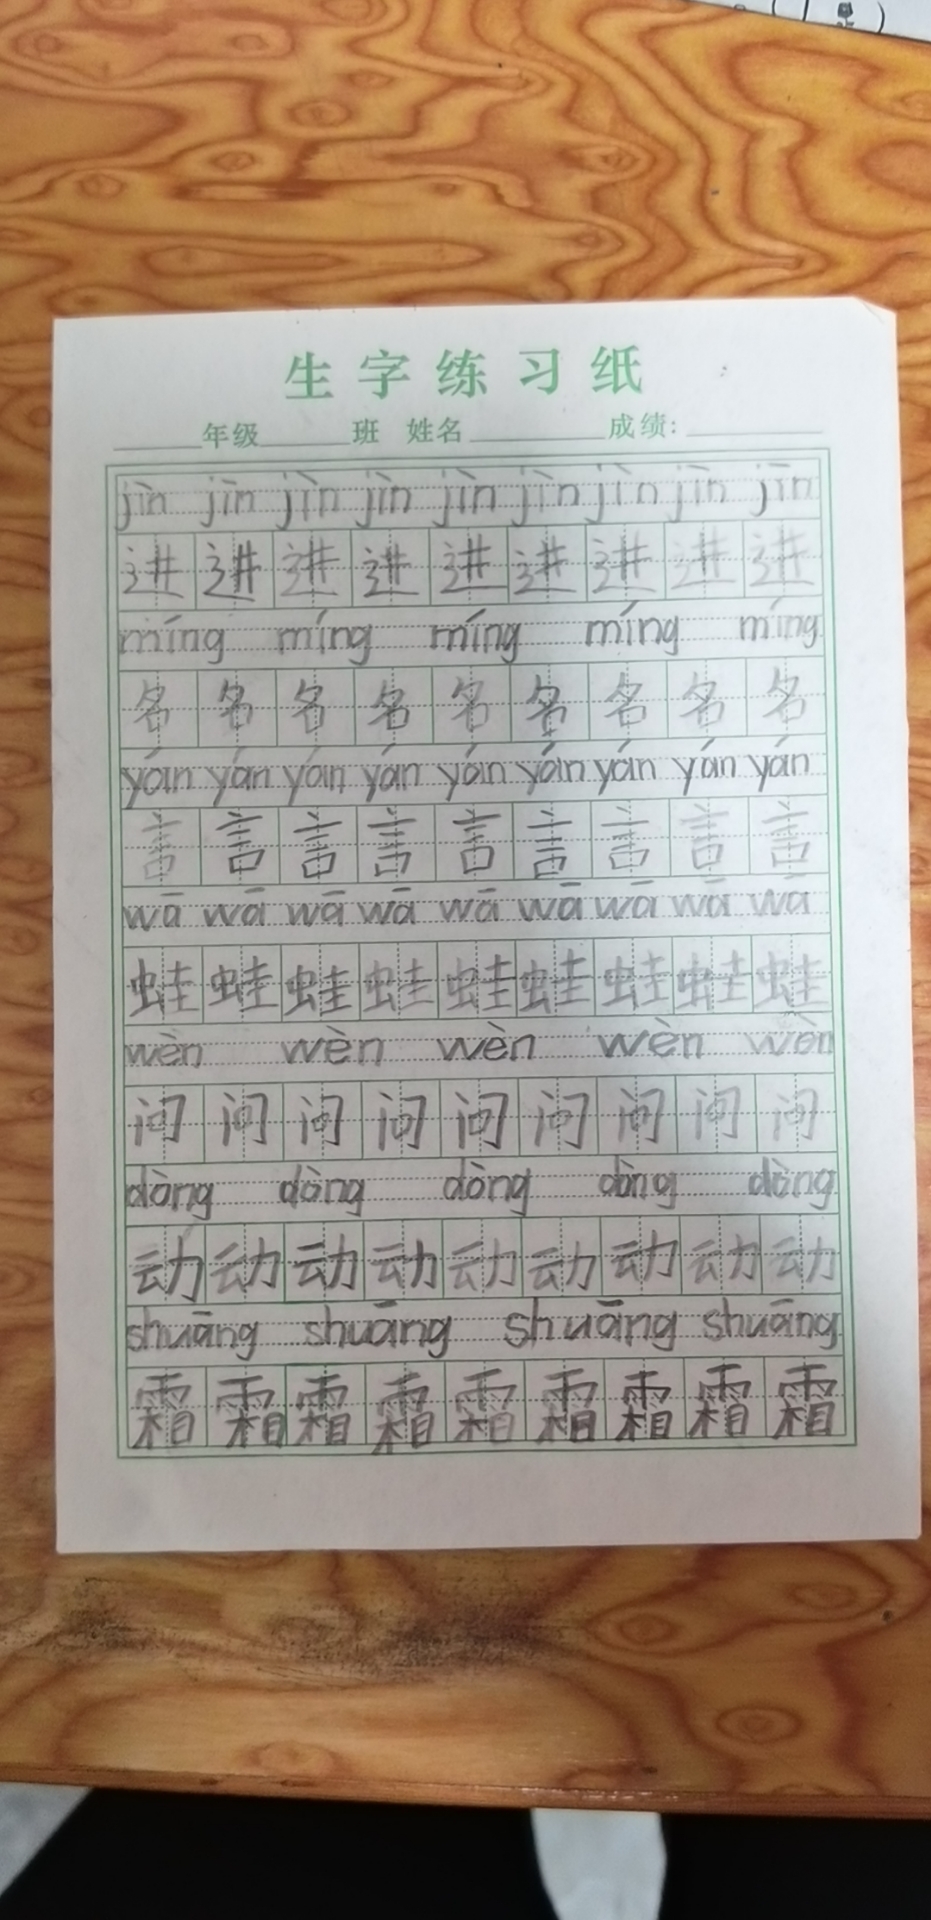 生字练习纸
年级 班 姓名 成绩:
jìn jìn jìn jìn jìn jìn jìn jìn jìn
进 进 进 进 进 进 进 进 进
míng míng míng míng míng
名 名 名 名 名 名 名 名 名
yán yán yán yán yán yán yán yán yán
言 言 言 言 言 言 言 言 言
wā wā wā wā wā wā wā wā wā
蛙 蛙 蛙 蛙 蛙 蛙 蛙 蛙 蛙
wèn wèn wèn wèn wèn
问 问 问 问 问 问 问 问 问
dòng dòng dòng dòng dòng
动 动 动 动 动 动 动 动 动
shuāng shuāng shuāng shuāng
霜 霜 霜 霜 霜 霜 霜 霜 霜